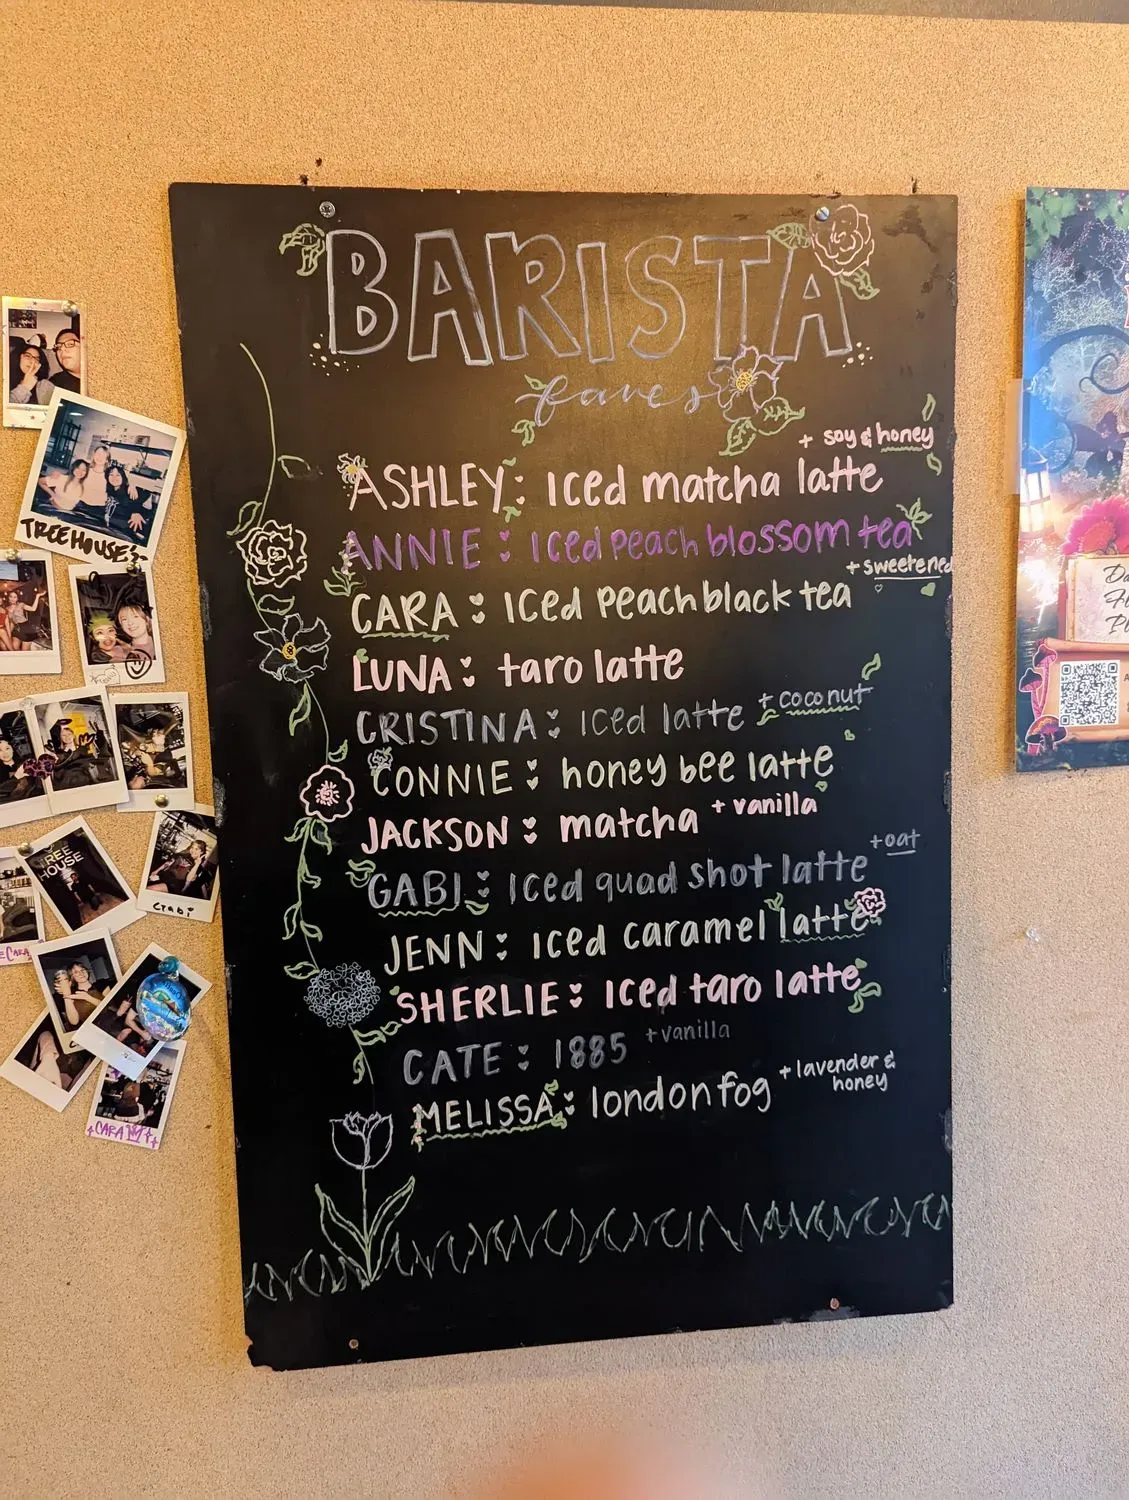 BARISTA
faves
+ soy & honey
ASHLEY: Iced matcha latte
ANNIE: Iced peach blossom tea
+ sweetened
CARA: Iced peach black tea
LUNA: taro latte
CRISTINA: Iced latte + coconut
CONNIE: honey bee latte
JACKSON: matcha + vanilla
GABI: Iced quad shot latte + oat
JENN: Iced caramel latte
SHERLIE: Iced taro latte
CATE: 1885 + vanilla
MELISSA: london fog + lavender &
honey
TREEHOUSE
TREE
HOUSE
Gabi
CARA